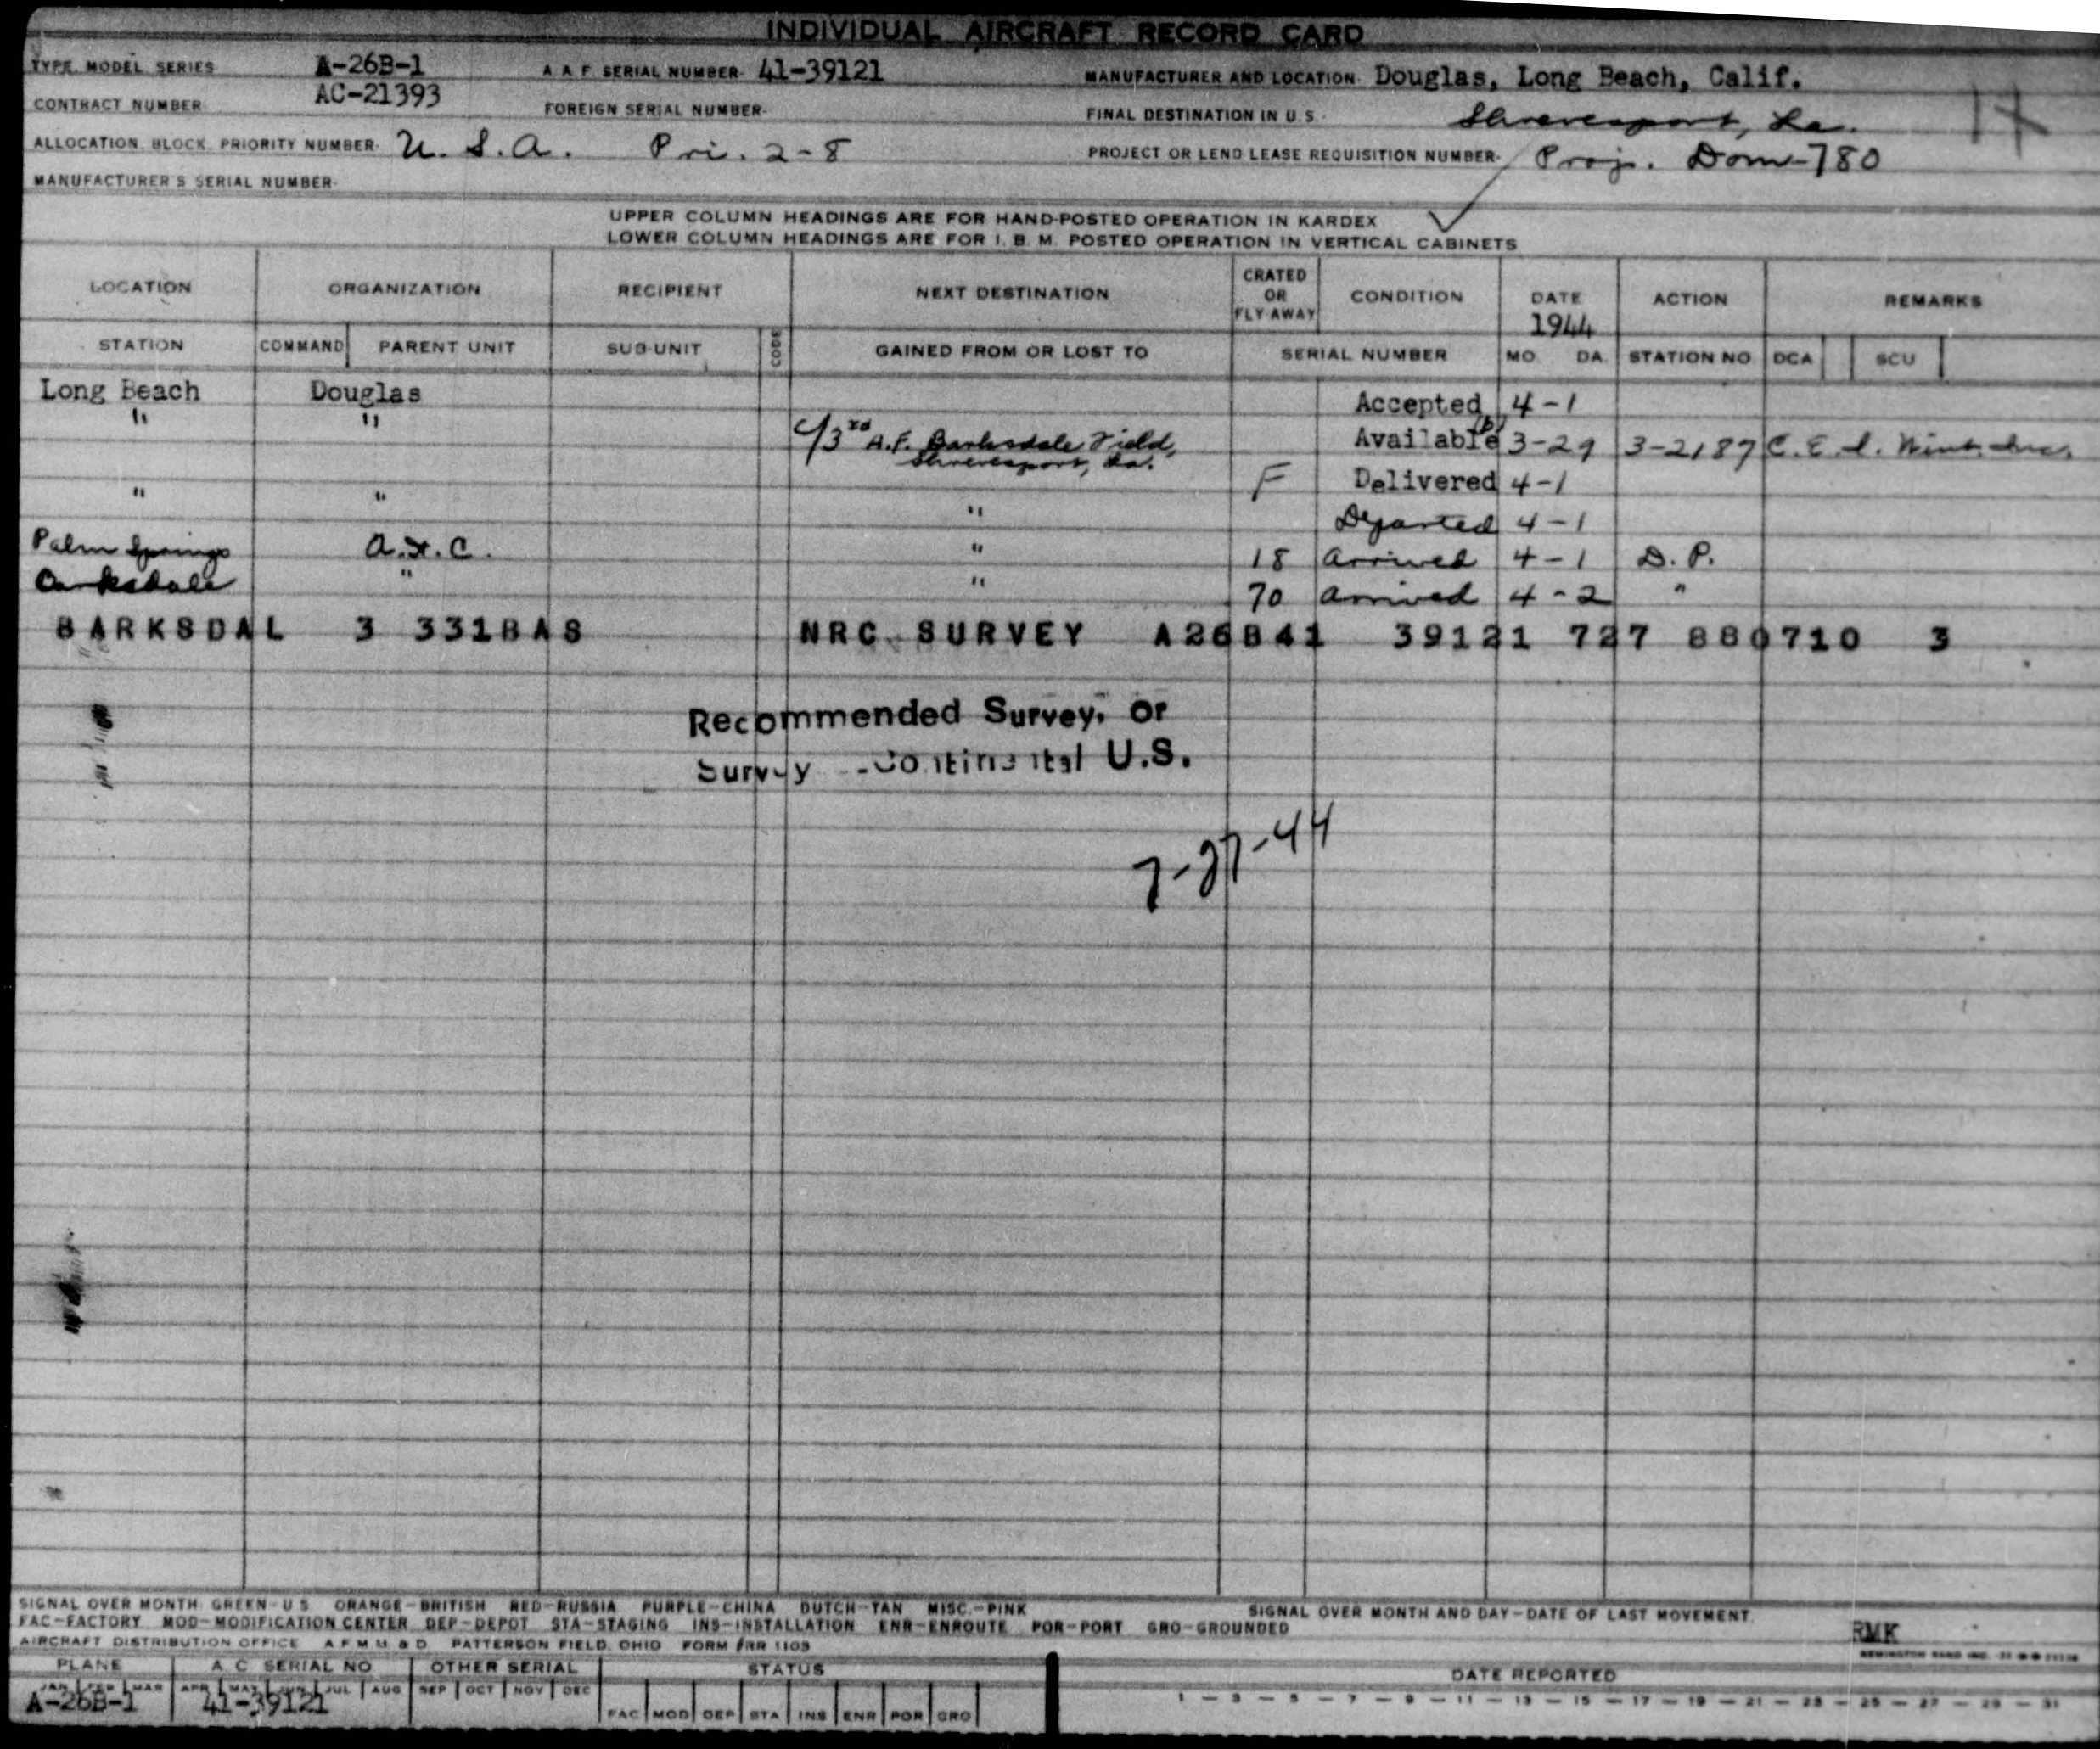 INDIVIDUAL AIRCRAFT RECORD CARD
TYPE, MODEL, SERIES A-26B-1 A A F SERIAL NUMBER- 41-39121 MANUFACTURER AND LOCATION- Douglas, Long Beach, Calif.
CONTRACT NUMBER AC-21393 FOREIGN SERIAL NUMBER- FINAL DESTINATION IN U S - Shreveport, La. 17
ALLOCATION, BLOCK, PRIORITY NUMBER- U. S. A. Pri. 2-8 PROJECT OR LEND LEASE REQUISITION NUMBER- Proj. Dom-780
MANUFACTURER'S SERIAL NUMBER-
UPPER COLUMN HEADINGS ARE FOR HAND-POSTED OPERATION IN KARDEX
LOWER COLUMN HEADINGS ARE FOR I. B. M. POSTED OPERATION IN VERTICAL CABINETS
LOCATION ORGANIZATION RECIPIENT NEXT DESTINATION CRATED OR FLY-AWAY CONDITION DATE 1944 ACTION REMARKS
STATION COMMAND PARENT UNIT SUB-UNIT CODE GAINED FROM OR LOST TO SERIAL NUMBER MO. DA. STATION NO DCA SCU
Long Beach Douglas Accepted 4-1
" " 3rd A.F. Barksdale Field, Available 3-29 3-2187 C. E. Wint.
Shreveport, La.
" " F Delivered 4-1
" Departed 4-1
Palm Springs " 18 Arrived 4-1 D. P.
Barksdale " " 70 Arrived 4-2 "
BARKSDAL 3 331BAS NRC SURVEY A26B41 39121 727 880710 3
Recommended Survey, or
Survey - Continental U.S.
7-27-44
SIGNAL OVER MONTH GREEN-U S ORANGE-BRITISH RED-RUSSIA PURPLE-CHINA DUTCH-TAN MISC.-PINK SIGNAL OVER MONTH AND DAY-DATE OF LAST MOVEMENT.
FAC-FACTORY MOD-MODIFICATION CENTER DEP-DEPOT STA-STAGING INS-INSTALLATION ENR-ENROUTE POR-PORT GRO-GROUNDED
RMK
AIRCRAFT DISTRIBUTION OFFICE A F M U & D PATTERSON FIELD, OHIO FORM 1103
PLANE A C SERIAL NO OTHER SERIAL STATUS DATE REPORTED
JAN FEB MAR APR MAY JUN JUL AUG SEP OCT NOV DEC 1 - 3 - 5 - 7 - 9 - 11 - 13 - 15 - 17 - 19 - 21 - 23 - 25 - 27 - 29 - 31
A-26B-1 41-39121 FAC MOD DEP STA INS ENR POR GRO